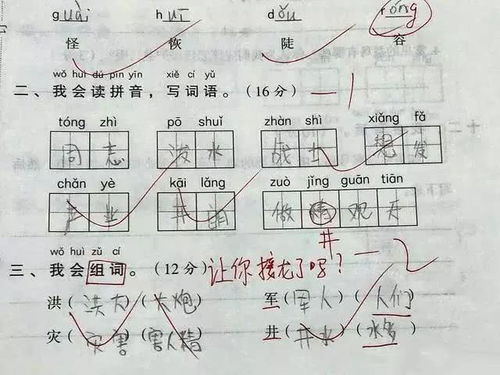 guài huī dǒu róng
怪 恢 陡 容
wǒ huì dú pīn yīn xiě cí yǔ
二、我会读拼音，写词语。（16分） —1
tóng zhì pō shuǐ zhàn shì xiǎng fǎ
同志 泼水 战士 想发
chǎn yè kāi lǎng zuò jǐng guān tiān
产业 做 观天
井
wǒ huì zǔ cí
三、我会组词。（12分） 让你接龙了吗？ —2
洪（洪大）（大炮） 军（军人）（人们）
灾（灾害）（害人精） 井（井水）